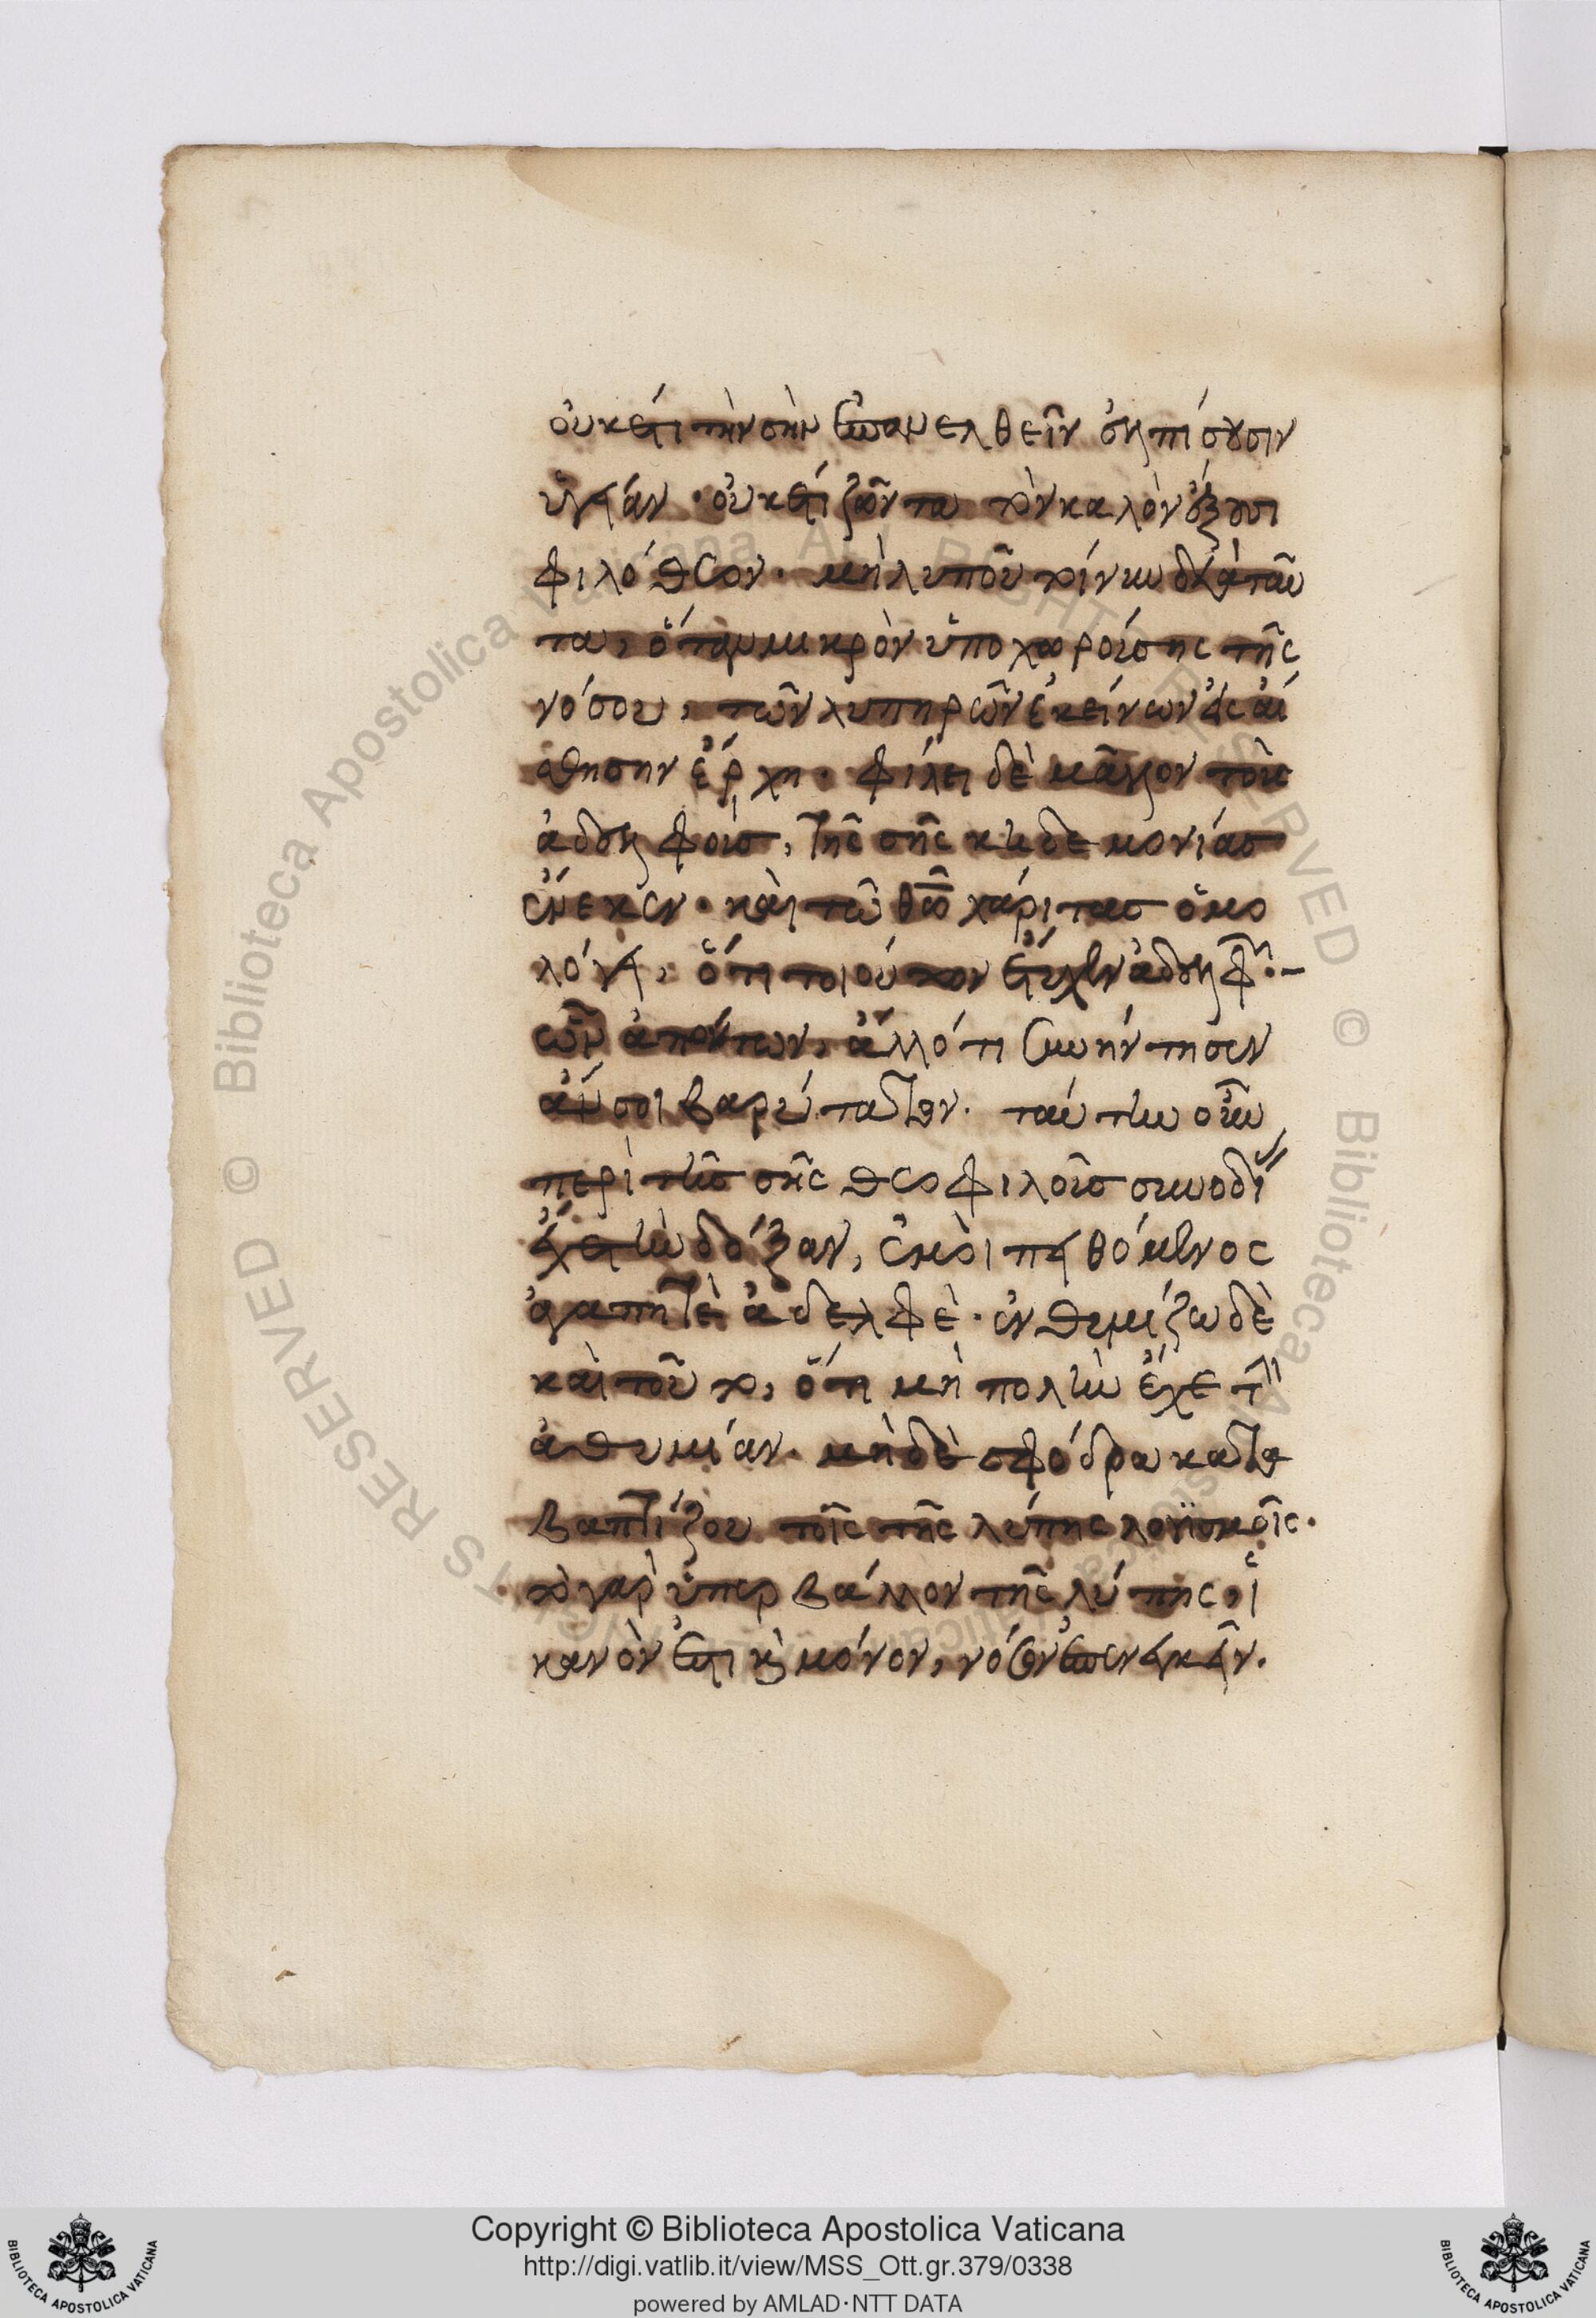 οὐκέτι τὴν σὴν ἐπανελθεῖν ἐλπίσουσιν
ὑγείαν · οὐκέτι ζῶντα τὸν καλὸν ἕξουσι
φιλόθεον · μὴ λυποῦ τοίνυν διὰ ταῦ
τα, ὅταν μικρὸν ὑποχωρούσης τῆς
νόσου, τῶν λυπηρῶν ἐκείνων εἰς αἴ
σθησην ἔρχη · φίλει δὲ μᾶλλον τοὺς
ἀδελφοὺς, τῆς σῆς κηδεμονίας
ἕνεκεν · καὶ τῶ θῶ χάριτας ὁμο
λόγει, ὅτι τοιούτων ἔτυχεν ἀδελφῶν ·
ἀπόντων, ἀλλότι συνήντησεν
ἄν σοι βαρύτατον. ταύτην οὖν
περὶ τῆς σῆς θεοφιλοῦς συνοδί
ἔχε τὴν δόξαν, ἐμοὶ πειθόμενος
ἀγαπητὲ ἀδελφέ · ἐνθυμίζω δὲ
καὶ τοῦτο, ὅτι μὴ πολὺν ἔχε τὴν
ἀθυμίαν · μηδὲ σφόδρα κατα
βαπτίζου τοῖς τῆς λύπης λογισμοῖς ·
τὸ γὰρ ὑπερβάλλον τῆς λύπης, ἱ
κανὸν ἐστι καὶ μόνον, νόσον ἐπενεγκεῖν.
Copyright © Biblioteca Apostolica Vaticana
http://digi.vatlib.it/view/MSS_Ott.gr.379/0338
powered by AMLAD·NTT DATA